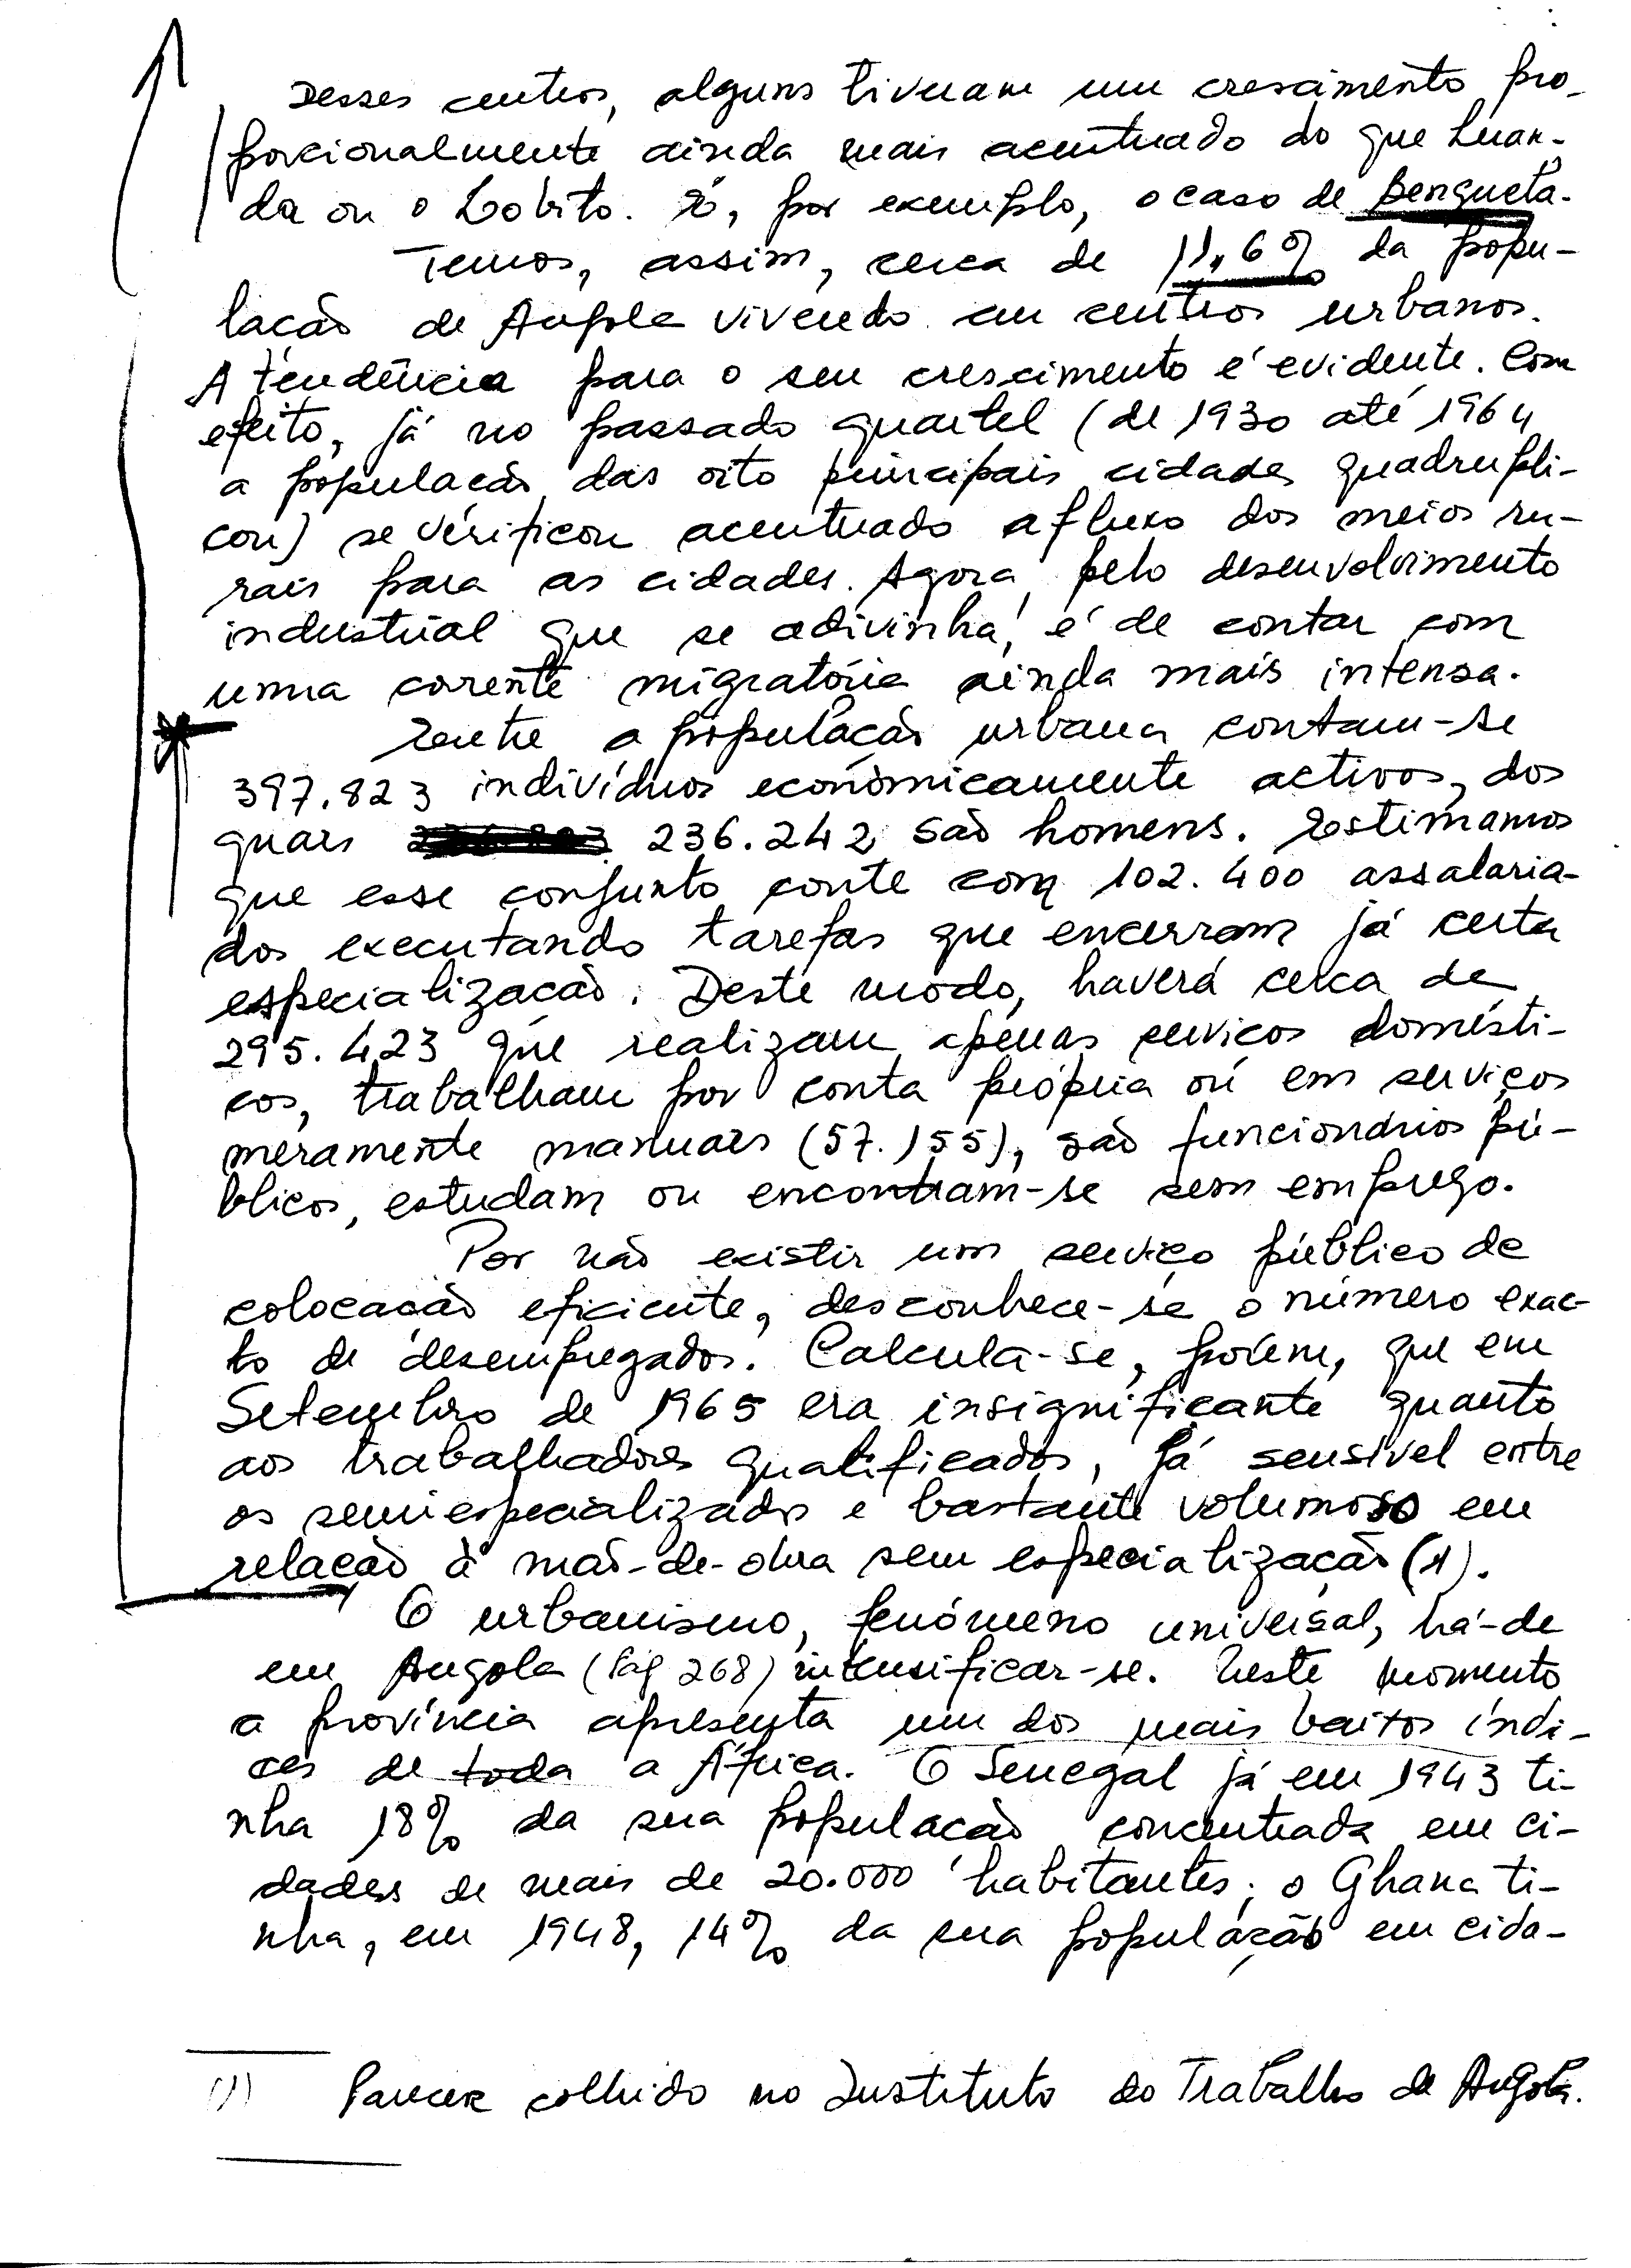 Desses centros, alguns tiveram um crescimento pro-
porcionalmente ainda mais acentuado do que Luan-
da ou o Lobito. É, por exemplo, o caso de Benguela.
Temos, assim, cerca de 11,6% da popu-
lação de Angola vivendo em centros urbanos.
A tendência para o seu crescimento é evidente. Com
efeito, já no passado quartel (de 1930 até 1964
a população das oito principais cidades quadrupli-
cou) se verificou acentuado afluxo dos meios ru-
rais para as cidades. Agora, pelo desenvolvimento
industrial que se adivinha, é de contar com
uma corrente migratória ainda mais intensa.
Entre a população urbana contam-se
397.823 indivíduos econòmicamente activos, dos
quais 236.242 são homens. Estimamos
que esse conjunto conte com 102.400 assalaria-
dos executando tarefas que encerram já certa
especialização. Deste modo, haverá cerca de
295.423 que realizam apenas serviços domésti-
cos, trabalham por conta própria ou em serviços
meramente manuais (57.155), são funcionários pú-
blicos, estudam ou encontram-se sem emprego.
Por não existir um serviço público de
colocação eficiente, desconhece-se o número exac-
to de desempregados. Calcula-se, porém, que em
Setembro de 1965 era insignificante quanto
aos trabalhadores qualificados, já sensível entre
os semiespecializados e bastante volumoso em
relação à mão-de-obra sem especialização (1).
O urbanismo, fenómeno universal, há-de
em Angola (Pág 268) intensificar-se. Neste momento
a província apresenta um dos mais baixos índi-
ces de toda a África. O Senegal já em 1943 ti-
nha 18% da sua população concentrada em ci-
dades de mais de 20.000 habitantes; o Ghana ti-
nha, em 1948, 14% da sua população em cida-
(1) Parecer colhido no Instituto do Trabalho de Angola.